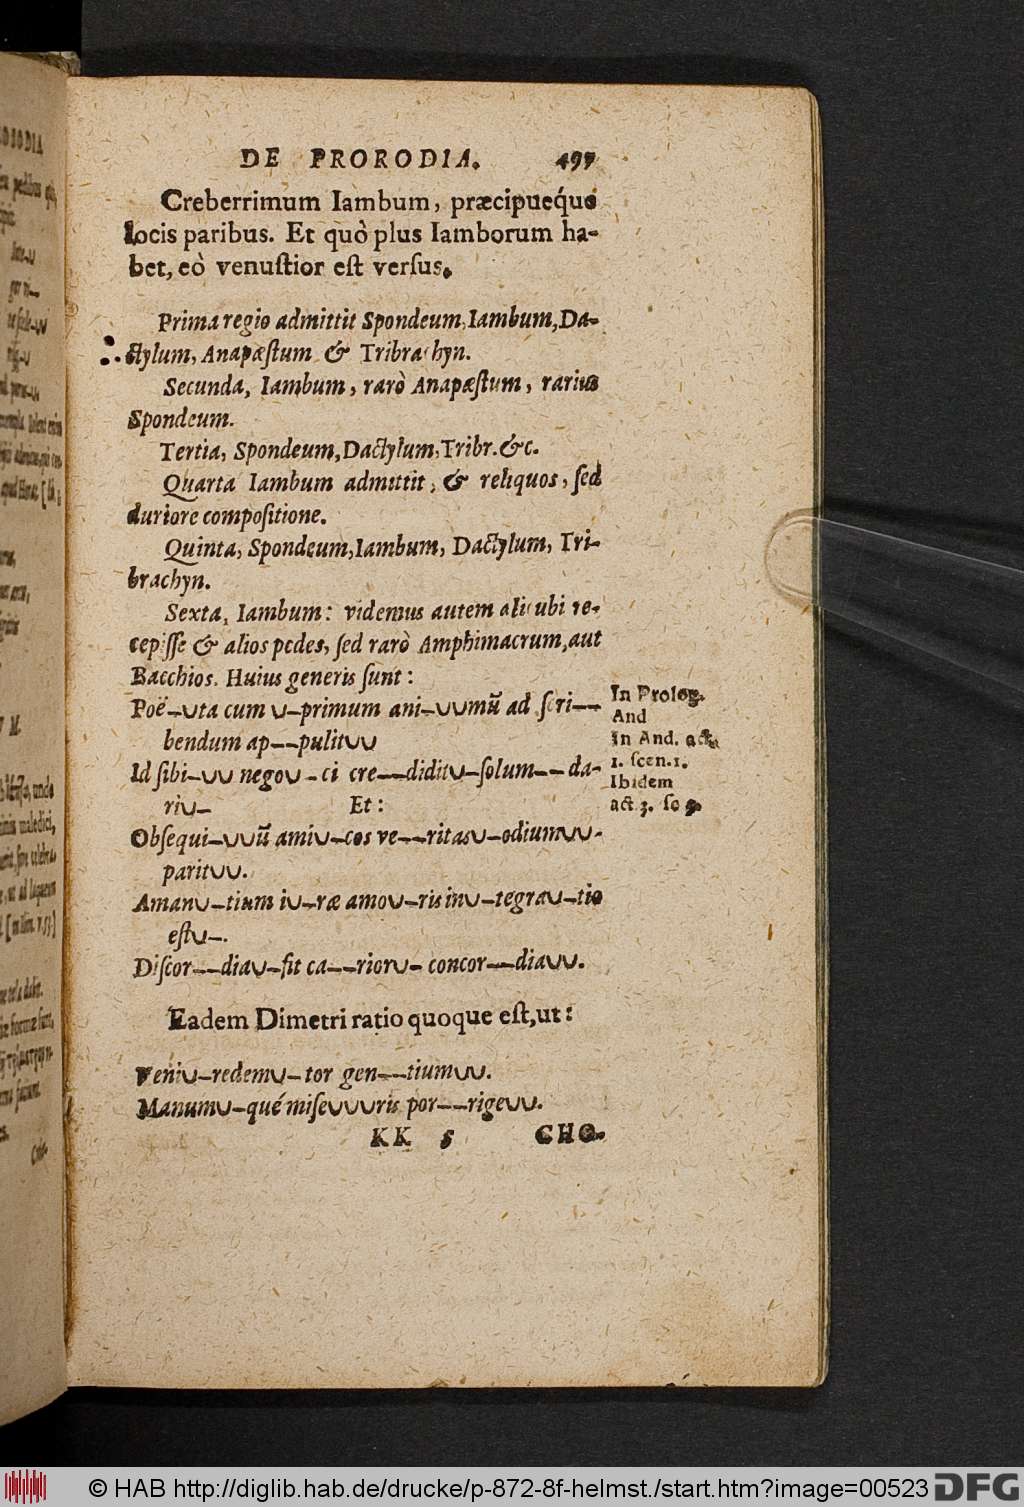 DE PRORODIA. 497
Creberrimum Iambum, præcipueq́ue
locis paribus. Et quò plus Iamborum ha-
bet, eò venuſtior eſt verſus.
Prima regio admittit Spondeum, Iambum, Da-
ctylum, Anapæſtum & Tribrachyn.
Secunda, Iambum, rarò Anapæſtum, rarius
Spondeum.
Tertia, Spondeum, Dactylum, Tribr. &c.
Quarta Iambum admittit, & reliquos, ſed
duriore compoſitione.
Quinta, Spondeum, Iambum, Dactylum, Tri-
brachyn.
Sexta, Iambum: videmus autem alicubi re-
cepiſſe & alios pedes, ſed rarò Amphimacrum, aut
Bacchios. Huius generis ſunt:
Poë–∪ta cum ∪–primum ani–∪∪mũ ad ſcri––
bendum ap––pulit∪∪
Id ſibi–∪∪ nego∪–ci cre––didit∪–ſolum––da-
ri∪– Et:
Obſequi–∪∪ũ ami∪–cos ve––ritas∪–odium∪∪-
parit∪∪.
Aman∪–tium i∪–ræ amo∪–ris in∪–tegra∪–tio
eſt∪–.
Diſcor––dia∪–fit ca––rior∪–concor––dia∪∪.
In Prolog.
And
In And. act.
1. ſcen. 1.
Ibidem
act. 3. ſc 9.
Eadem Dimetri ratio quoque eſt, ut:
Veni∪–redem∪–tor gen––tium∪∪.
Manum∪–qué miſe∪∪∪ris por––rige∪∪.
KK 5 CHO-
© HAB http://diglib.hab.de/drucke/p-872-8f-helmst./start.htm?image=00523
DFG